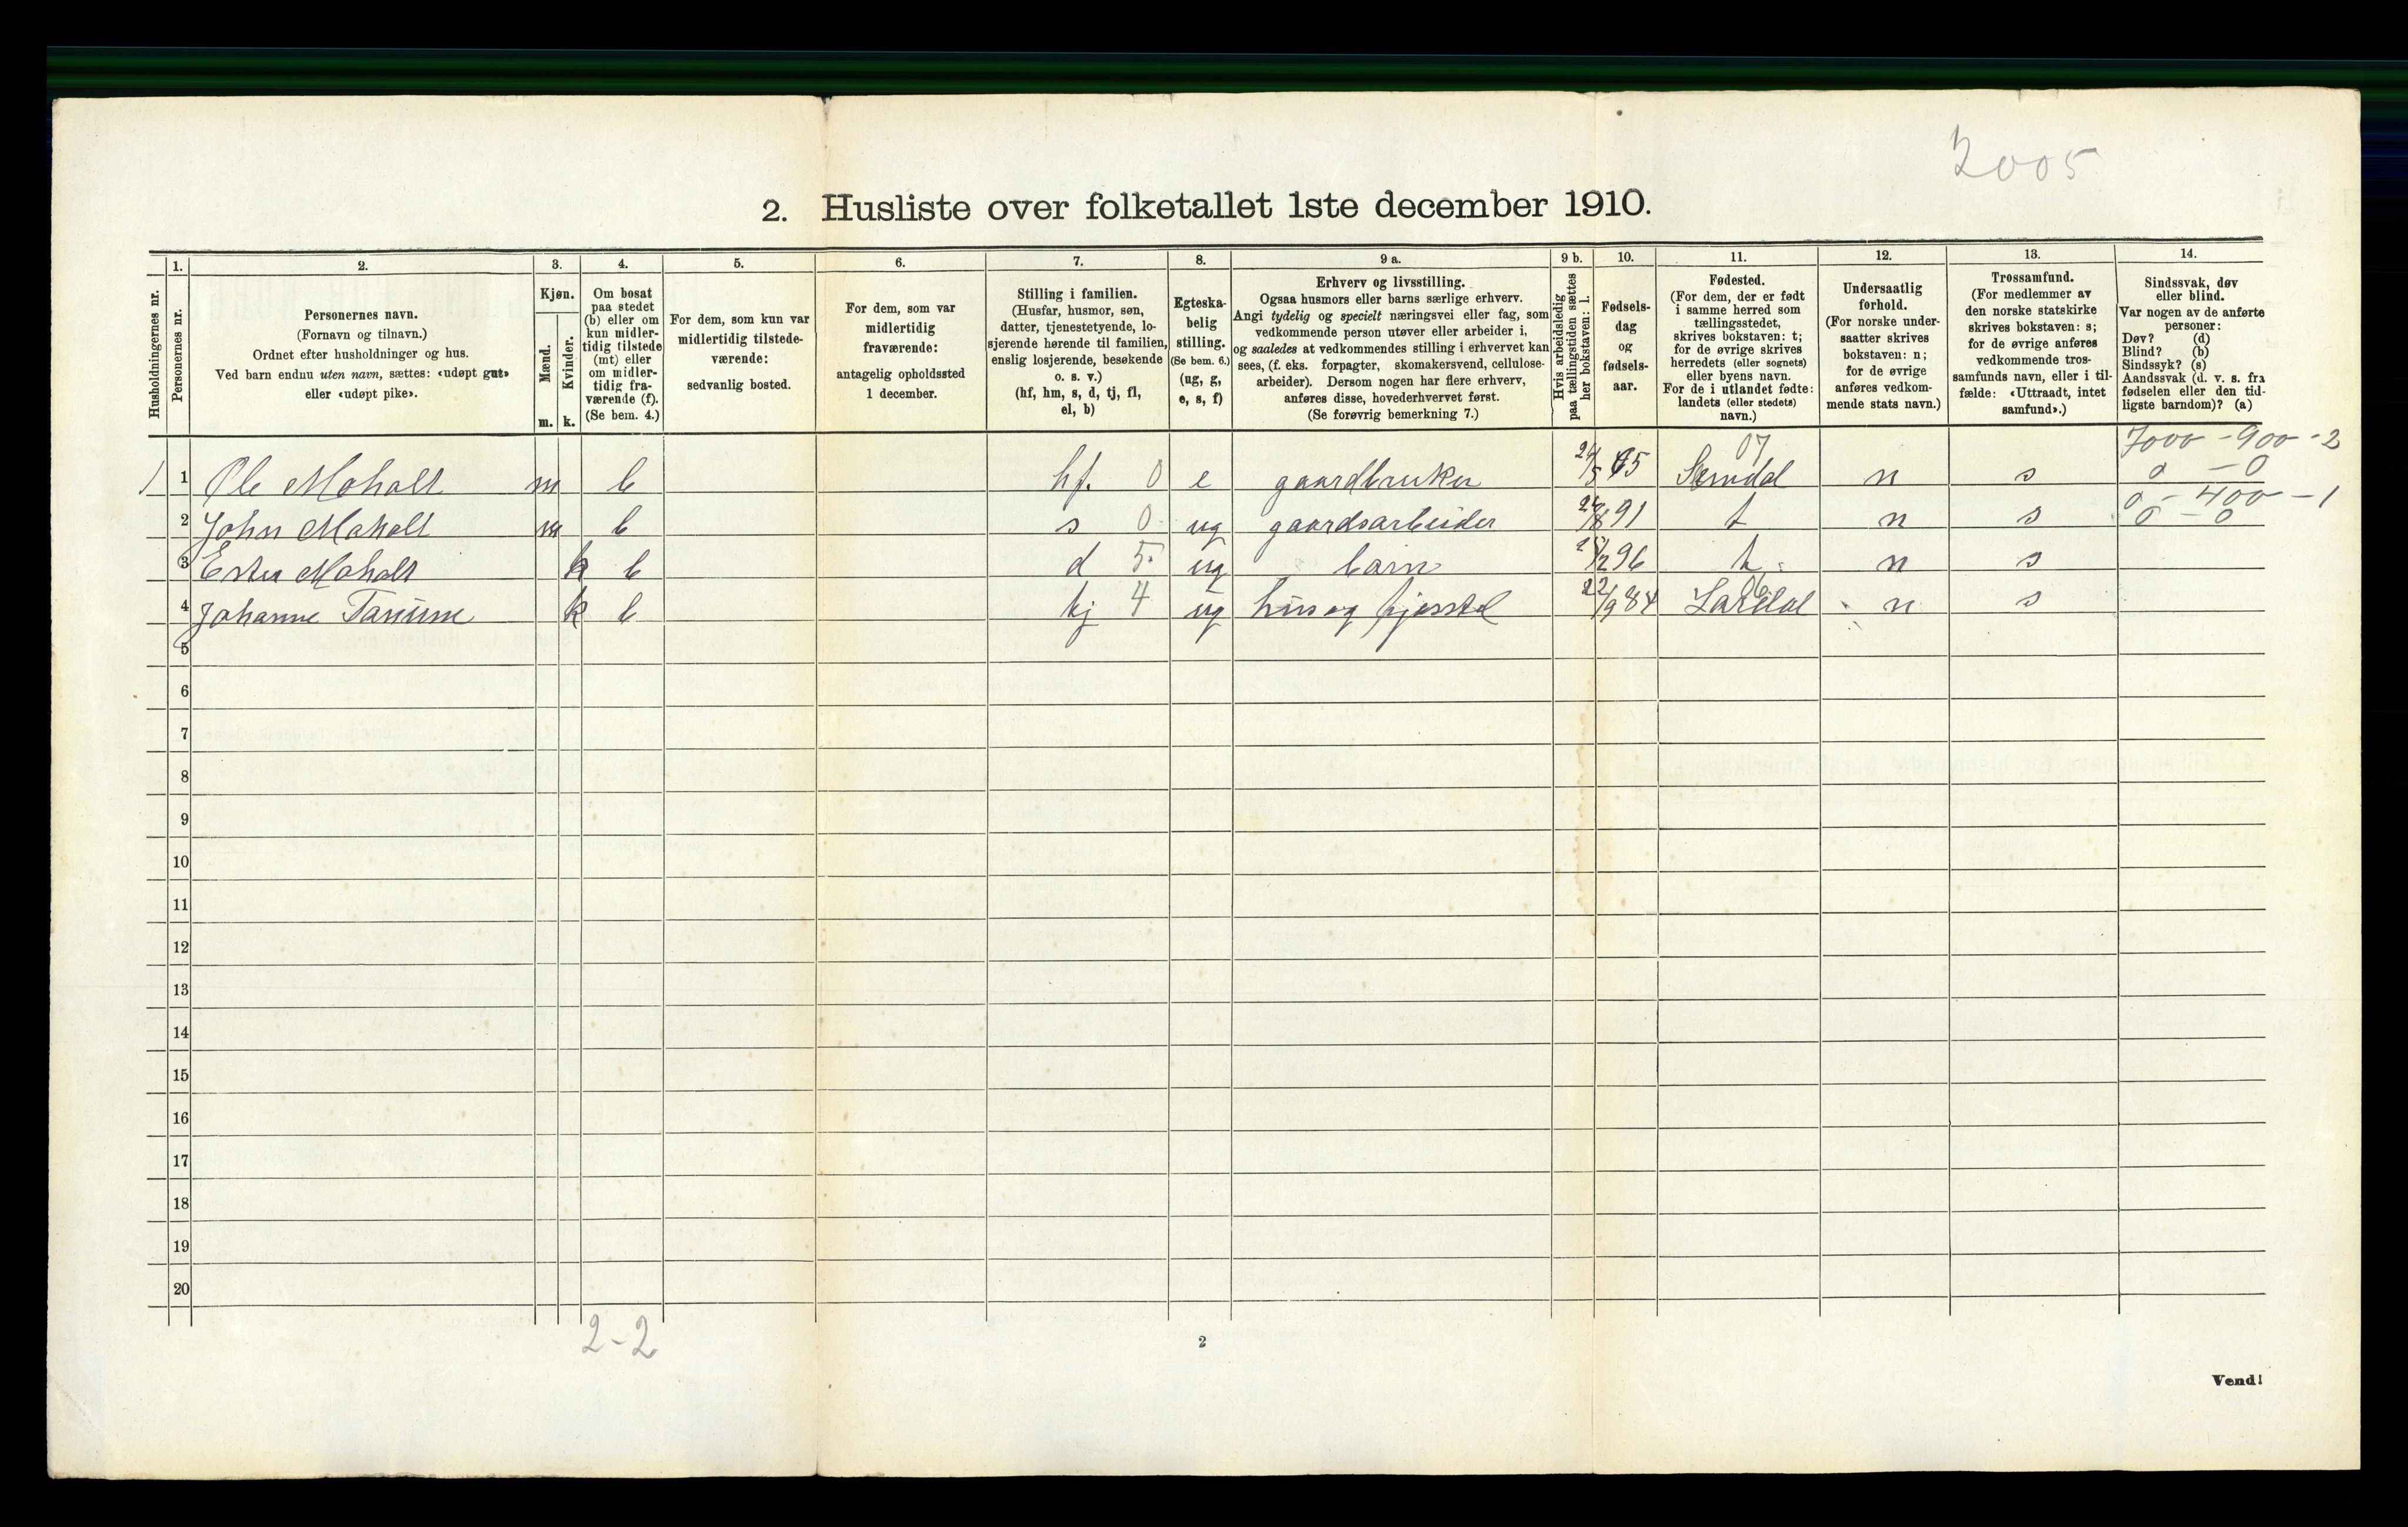 2005
2. Husliste over folketallet 1ste december 1910.
Husholdningernes nr.
1. Personernes nr.
2. Personernes navn.
(Fornavn og tilnavn.)
Ordnet efter husholdninger og hus.
Ved barn endnu uten navn, sættes: «udøpt gut»
eller «udøpt pike».
3. Kjøn.
Mænd. m.
Kvinder. k.
4. Om bosat
paa stedet
(b) eller om
kun midler-
tidig tilstede
(mt) eller
om midler-
tidig fra-
værende (f).
(Se bem. 4.)
5. For dem, som kun var
midlertidig tilstede-
værende:
sedvanlig bosted.
6. For dem, som var
midlertidig
fraværende:
antagelig opholdssted
1 december.
7. Stilling i familien.
(Husfar, husmor, søn,
datter, tjenestetyende, lo-
sjerende hørende til familien,
enslig losjerende, besøkende
o. s. v.)
(hf, hm, s, d, tj, fl,
el, b)
8. Egteska-
belig
stilling.
(Se bem. 6.)
(ug, g,
e, s, f)
9 a. Erhverv og livsstilling.
Ogsaa husmors eller barns særlige erhverv.
Angi tydelig og specielt næringsvei eller fag, som
vedkommende person utøver eller arbeider i,
og saaledes at vedkommendes stilling i erhvervet kan
sees, (f. eks. forpagter, skomakersvend, cellulose-
arbeider). Dersom nogen har flere erhverv,
anføres disse, hovederhvervet først.
(Se forøvrig bemerkning 7.)
9 b. Hvis arbeidsledig
paa tællingstiden sættes
her bokstaven: l.
10. Fødsels-
dag
og
fødsels-
aar.
11. Fødested.
(For dem, der er født
i samme herred som
tællingsstedet,
skrives bokstaven: t;
for de øvrige skrives
herredets (eller sognets)
eller byens navn.
For de i utlandet fødte:
landets (eller stedets)
navn.)
12. Undersaatlig
forhold.
(For norske under-
saatter skrives
bokstaven: n;
for de øvrige
anføres vedkom-
mende stats navn.)
13. Trossamfund.
(For medlemmer av
den norske statskirke
skrives bokstaven: s;
for de øvrige anføres
vedkommende tros-
samfunds navn, eller i til-
fælde: «Uttraadt, intet
samfund».)
14. Sindssvak, døv
eller blind.
Var nogen av de anførte
personer:
Døv? (d)
Blind? (b)
Sindssyk? (s)
Aandssvak (d. v. s. fra
fødselen eller den tid-
ligste barndom)? (a)
07 7000 - 900 - 2
1 1 Ole Moholt m b hf. 0 e gaardbruker 24/5 65 n s 0 - 0
0 - 400 - 1
2 John Moholt m b s 0 ug gaardsarbeider 91 t n s 0 - 0
3 Ester Moholt k b d 5. ug barn 25/2 96 t n s
06
4 Johanne Tanum k b tj 4 ug hus og fjøsstel 22/9 84 Lardal n s
5
6
7
8
9
10
11
12
13
14
15
16
17
18
19
20
2-2
2
Vend!